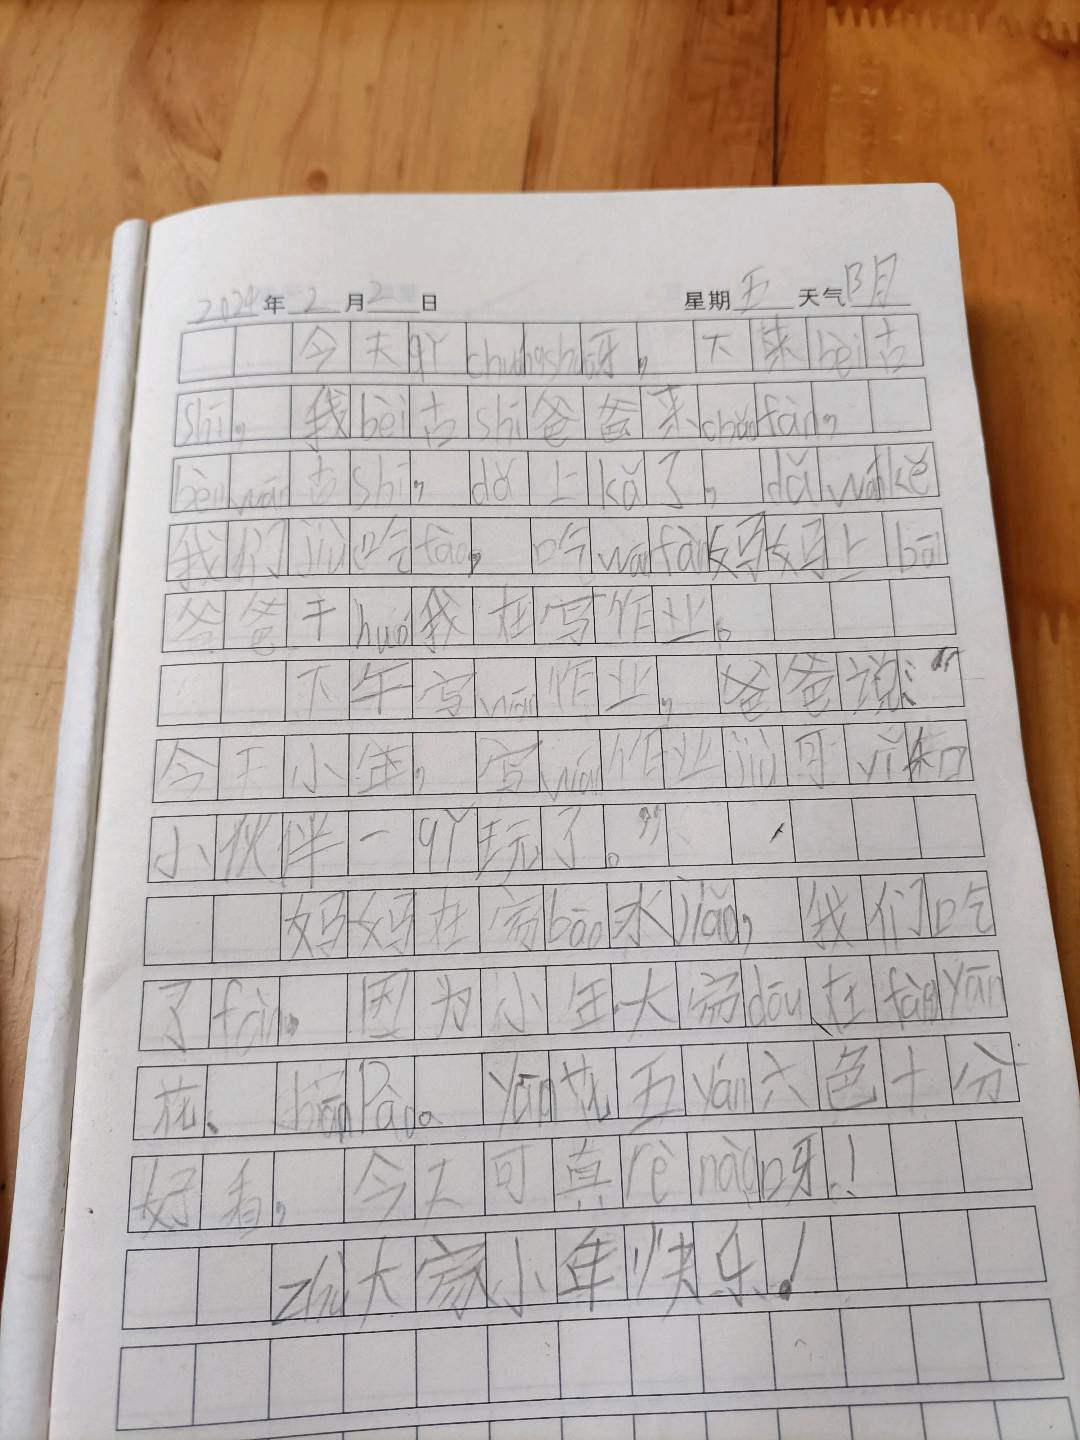 2024年2月2日 星期五 天气阴
今天qǐ chuáng shuā牙，下来bèi古
shī，我bèi古shī爸爸来chǎo fàn，
bèi wán古shī，dǎ上kǎ了，dǎ wán kǎ
我们jiù吃fàn，吃wán fàn妈妈上bān
爸爸干huó我在写作业。
下午写wán作业，爸爸说：“
今天小年，写wán作业jiù可yǐ和
小伙伴一qǐ玩了。”
妈妈在家bāo水jiǎo，我们吃
了fàn，因为小年大家dōu在fàng yān
花、biān Pào。yān花五yán六色十分
好看，今天可真rè nào呀！
zhù大家小年快乐！